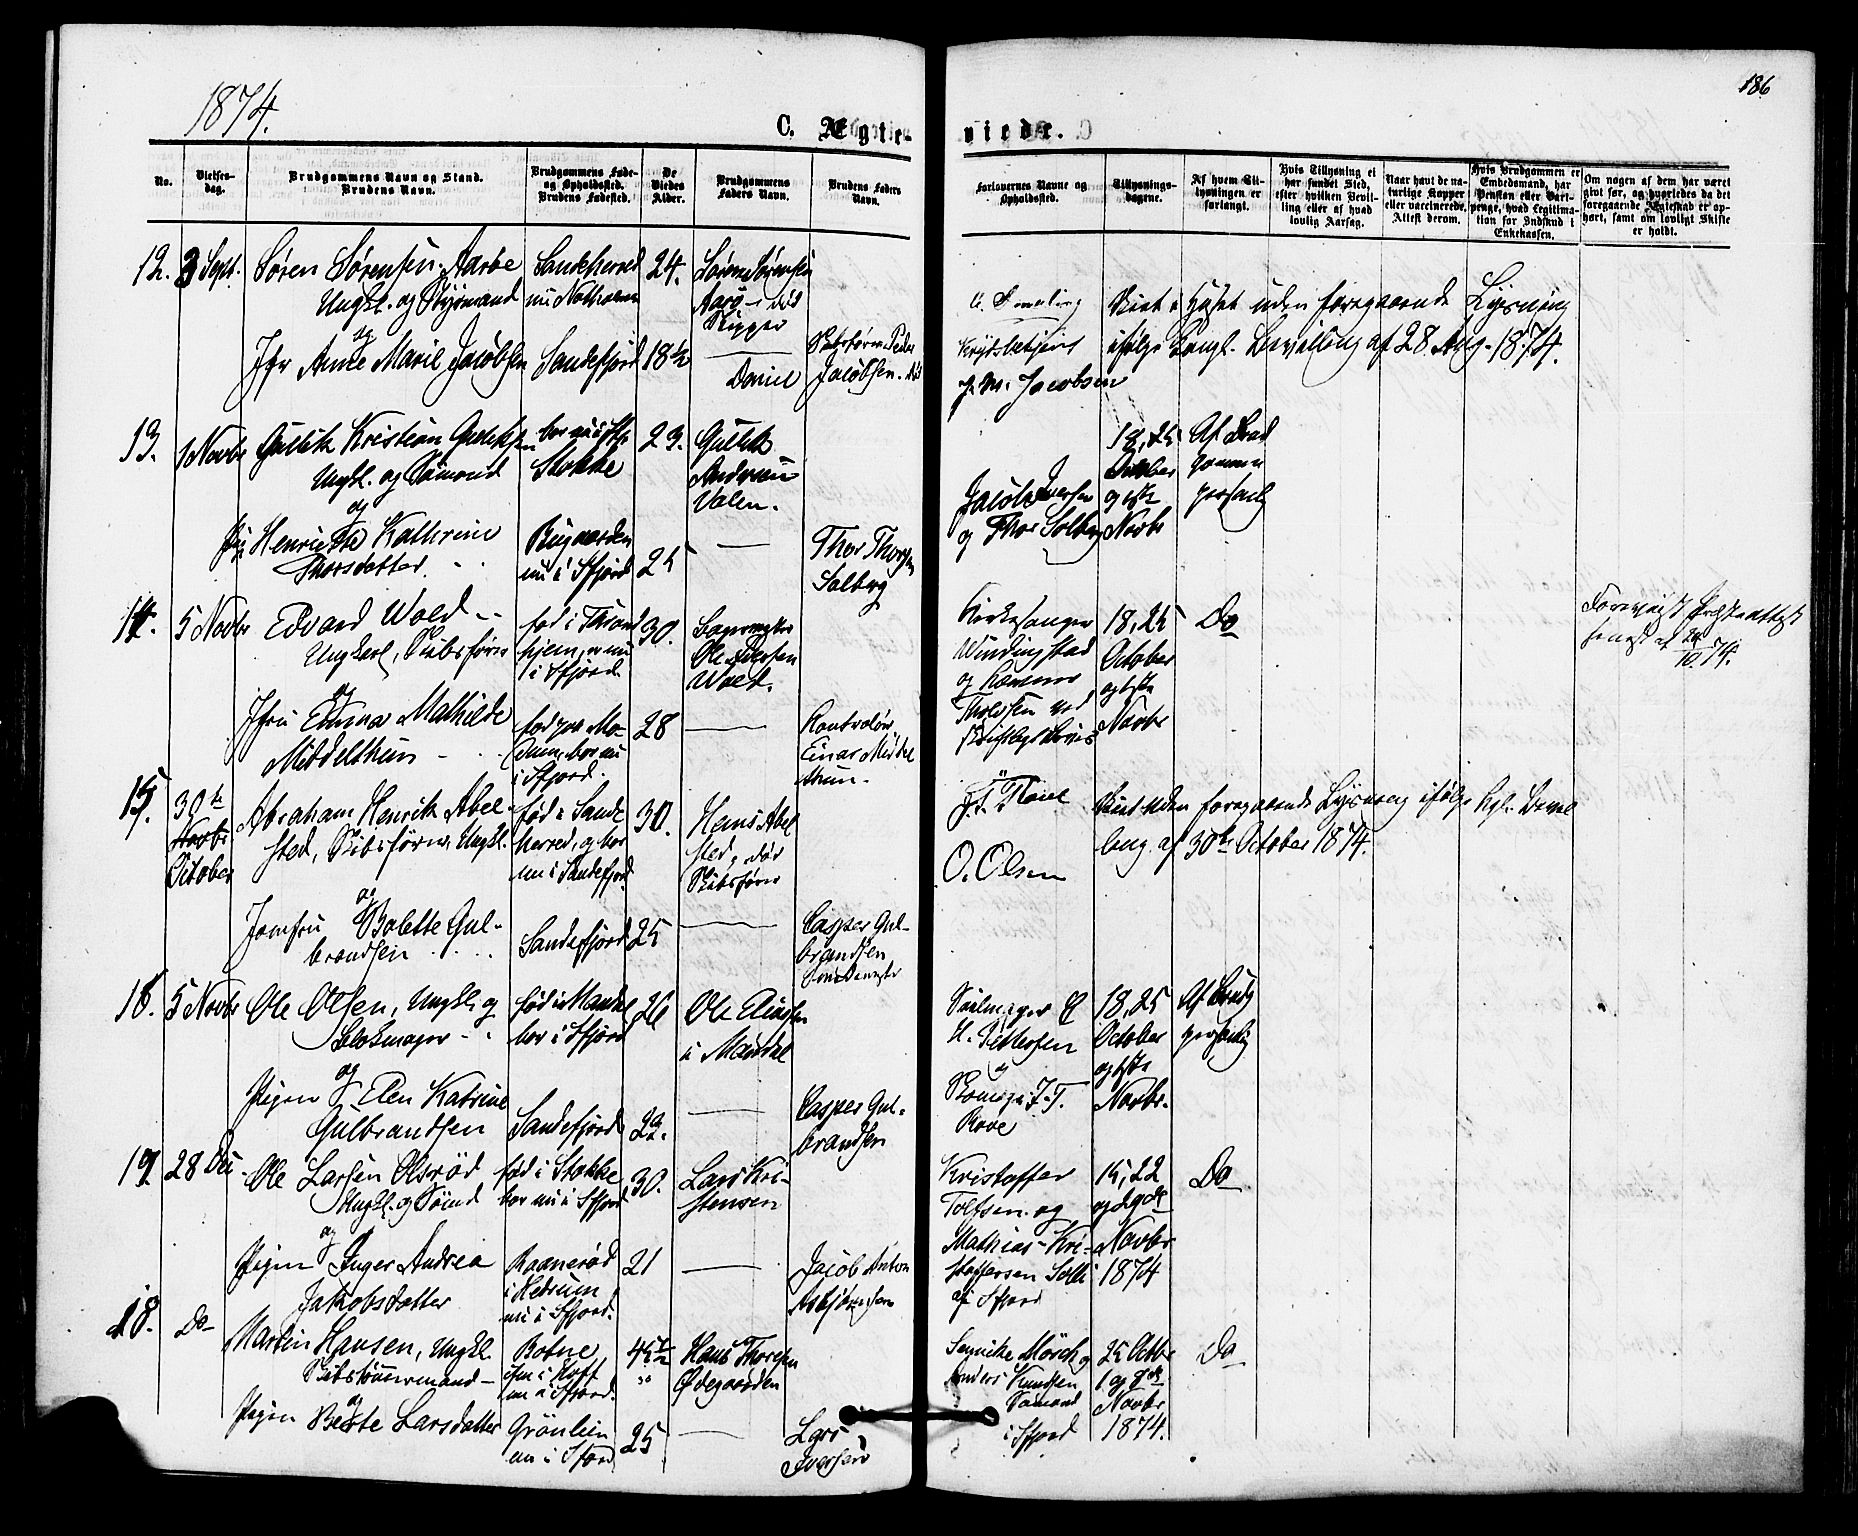 1874.
186
C. Ægte-
viede.
No.
Vielses-
dag.
Brudgommens Navn og Stand.
Brudens Navn.
Brudgommens Føde-
og Opholdssted.
Brudens Fødested.
De
Viedes
Alder.
Brudgommens
Faders Navn.
Brudens Faders
Navn.
Forlovernes Navne og
Opholdssted.
Tillysnings-
dagene.
Af hvem Til-
lysningen er
forlangt.
Hvis Tillysning ei
har fundet Sted,
efter hvilken Bevil-
ling eller af hvad
lovlig Aarsag.
Naar havt de na-
turlige Kopper
eller vaccinerede.
Attest derom.
Hvis Brudgommen er
Embedsmand, har
Pension eller Vart-
penge, hvad Legitima-
tion for Indskud i
Enkekassen.
Om nogen af dem har været
givt før, og hvorledes da det
foregaaende Ægteskab er op-
hørt, samt om lovligt Skifte
er holdt.
12. 3 Sept. Søren Sørensen Aarøe
Ungkl. og Styrmand
og
Jfr Anne Marie Jacobsen
Sandeherred
nu Nøtholmen
Sandefjord
24.
18½
Søren Sørensen
Aarø - død
Skipper
Skibsfører Peder
Jacobsen. død
Krydsbetjent
J. M. Jacobsen
Viet i Huset uden foregaaende Lysning
ifølge Kongl. Bevilling af 28 Aug. 1874.
13. 1 Novbr Gullik Kristian Gulliksen
Ungkl. og Sømand
og
Pig Henriette Kathrine
Thorsdatter
bor nu i Sfj.
Stokke
Bugaarden
nu i Sfjord
23.
25
Gullik
Andersen
Valen.
Thor Thorsen
Solberg
Jacob Iversen
og Thor Solberg
18, 25
October
og 1ste
Novbr
Af Brud
gommen
personlig
14. 5 Novbr Edvard Wold
Ungkarl, Skibsfører
og
Jfru Emma Mathilde
Middelthun
fød i Thrond
hjem, nu
i Sfjord
fød paa Mo-
dum, bor nu
i Sfjord.
30.
28
Ole Pedersen
Wold.
Kontrolør
Einar Middel
thun.
Kirkesanger
Windingstad
og
18, 25
October
og 1ste
Novbr
Do
Foreviist Præsteattest
15. 30te
Novbr
October
Abraham Henrik Abel-
sted, Skibsfører, Ungkl.
og
Jomfru Bolette Gul-
brandsen
fød i Sande
herred, og bor
nu i Sandefjord.
Sandefjord
30.
25
Hans Abel
sted, død
Skibsfører
Casper Gul-
brandsen
O. Olsen
Viet uden foregaaende Lysning ifølge Kgl. Bevil
ling af 30te October 1874.
16. 5 Novbr Ole Olsen, Ungkl. og
Blokmager
og
Pigen Elen Katrine
Gulbrandsen
fød i Mandal
bor i Sfjord
Sandefjord
26
22.
Ole Eliassen
i Mandal
Casper Gul-
brandsen
Seilmager C
H. Pettersen
og
Skomager J. T.
Rove
18, 25
October
og 1ste
Novbr.
Af Brudg
personlig
17. 28 Dec. Ole Larsen Olsrød
Ungkl. og Sømd
og
Pigen Inger Andrea
Jakobsdatter
fød i Stokke
bor nu i Sfjord
Raanerød
i Hedrum
nu i Sfjord.
30.
21
Lars Kri-
stensen
Jacob Anton
Asbjörnsen
Kristoffer
Tolfsen og
Mathias Kri-
stoffersen Solli
af Sfjord
15, 22
og 29de
Novbr
1874
Do
18. Do Martin Hansen, Ungkl.
Skibstømmermand
og
Pigen Berte Larsdatter
Botne
i Hoff
nu i Sfjord.
Grönlien
nu i Sfjord
45½
25
Hans Thoresen
Ødegaarden
Lars
Iversen
Sennicke Mörch og
Anders Knudsen
Sømand
i Sfjord
25 Octbr
1 og 8de
Novbr
1874.
Do